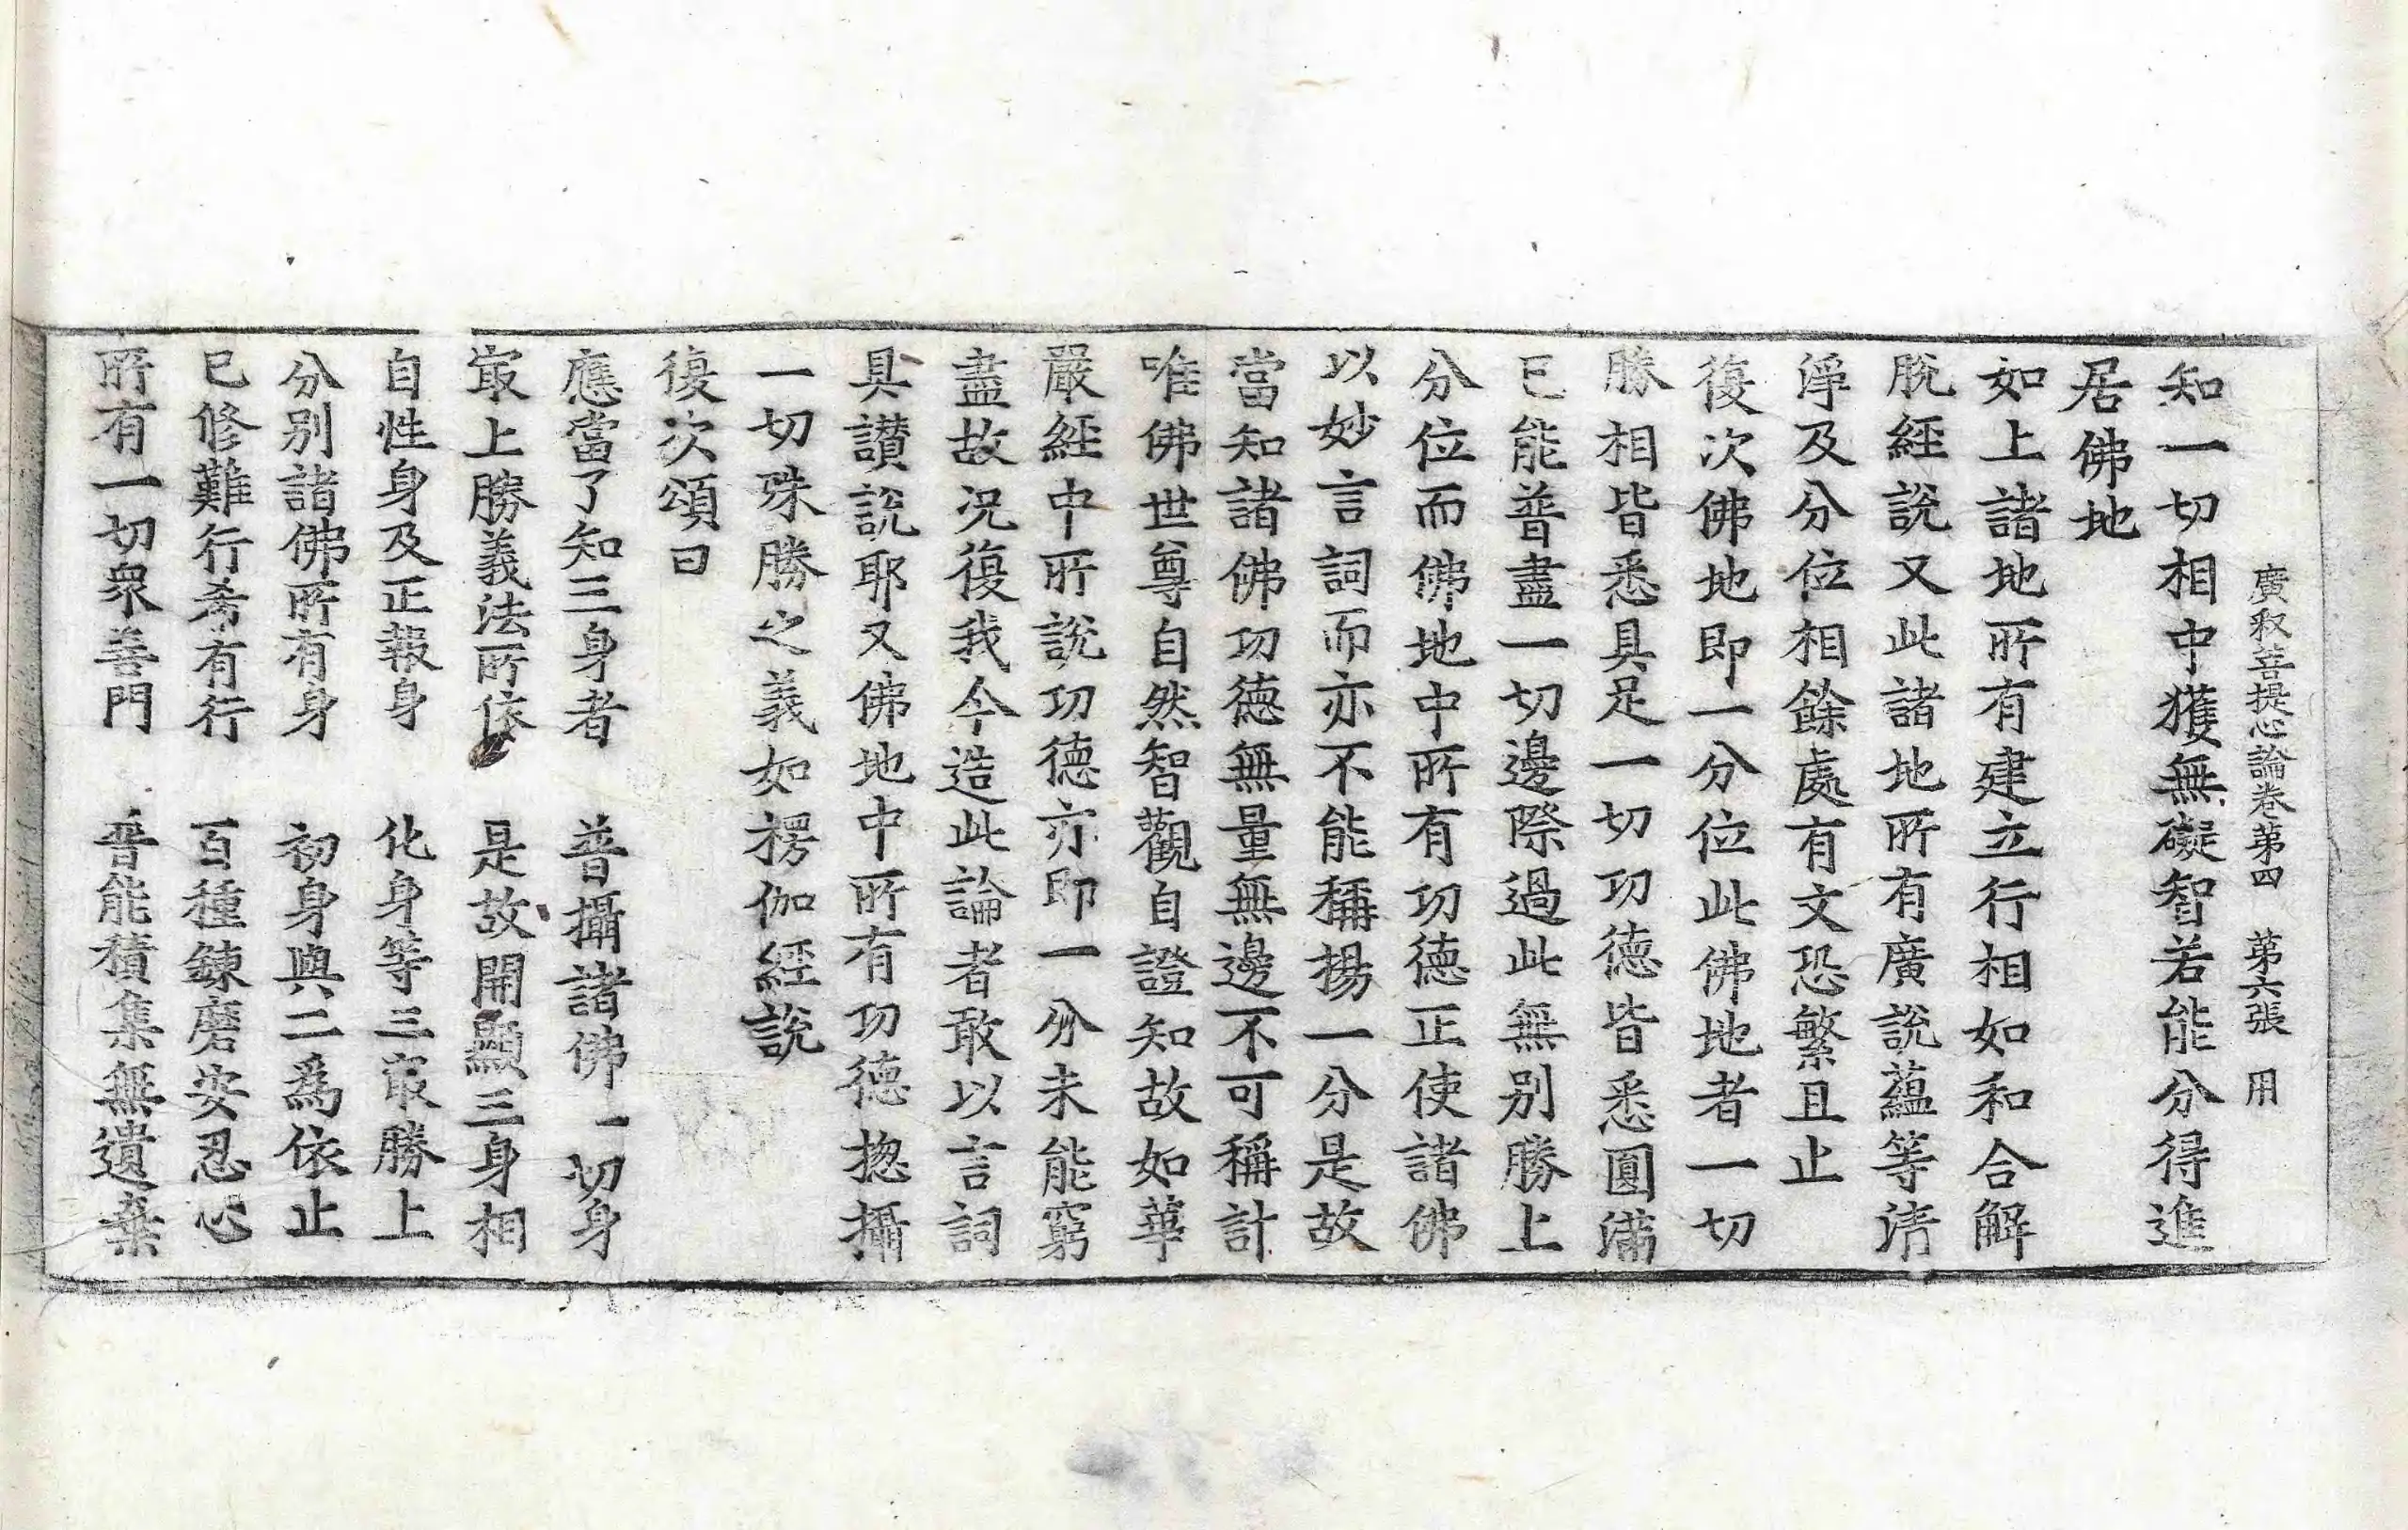 廣釈菩提心論卷第四　第六張　用
知一切相中獲無礙智若能分得進
居佛地
如上諸地所有建立行相如和合解
脫經說又此諸地所有廣說蘊等清
淨及分位相餘處有文恐繁且止
復次佛地即一分位此佛地者一切
勝相皆悉具足一切功德皆悉圓滿
已能普盡一切邊際過此無別勝上
分位而佛地中所有功德正使諸佛
以妙言詞而亦不能稱揚一分是故
當知諸佛功德無量無邊不可稱計
唯佛世尊自然智觀自證知故如華
嚴經中所說功德亦即一分未能窮
盡故况復我今造此論者敢以言詞
具讃說耶又佛地中所有功德揔攝
一切殊勝之義如楞伽經說
復次頌曰
應當了知三身者　普攝諸佛一切身
㝡上勝義法所依　是故開顯三身相
自性身及正報身　化身等三㝡勝上
分別諸佛所有身　初身與二爲依止
已修難行希有行　百種鍊磨安忍心
所有一切衆善門　普能積集無遺棄